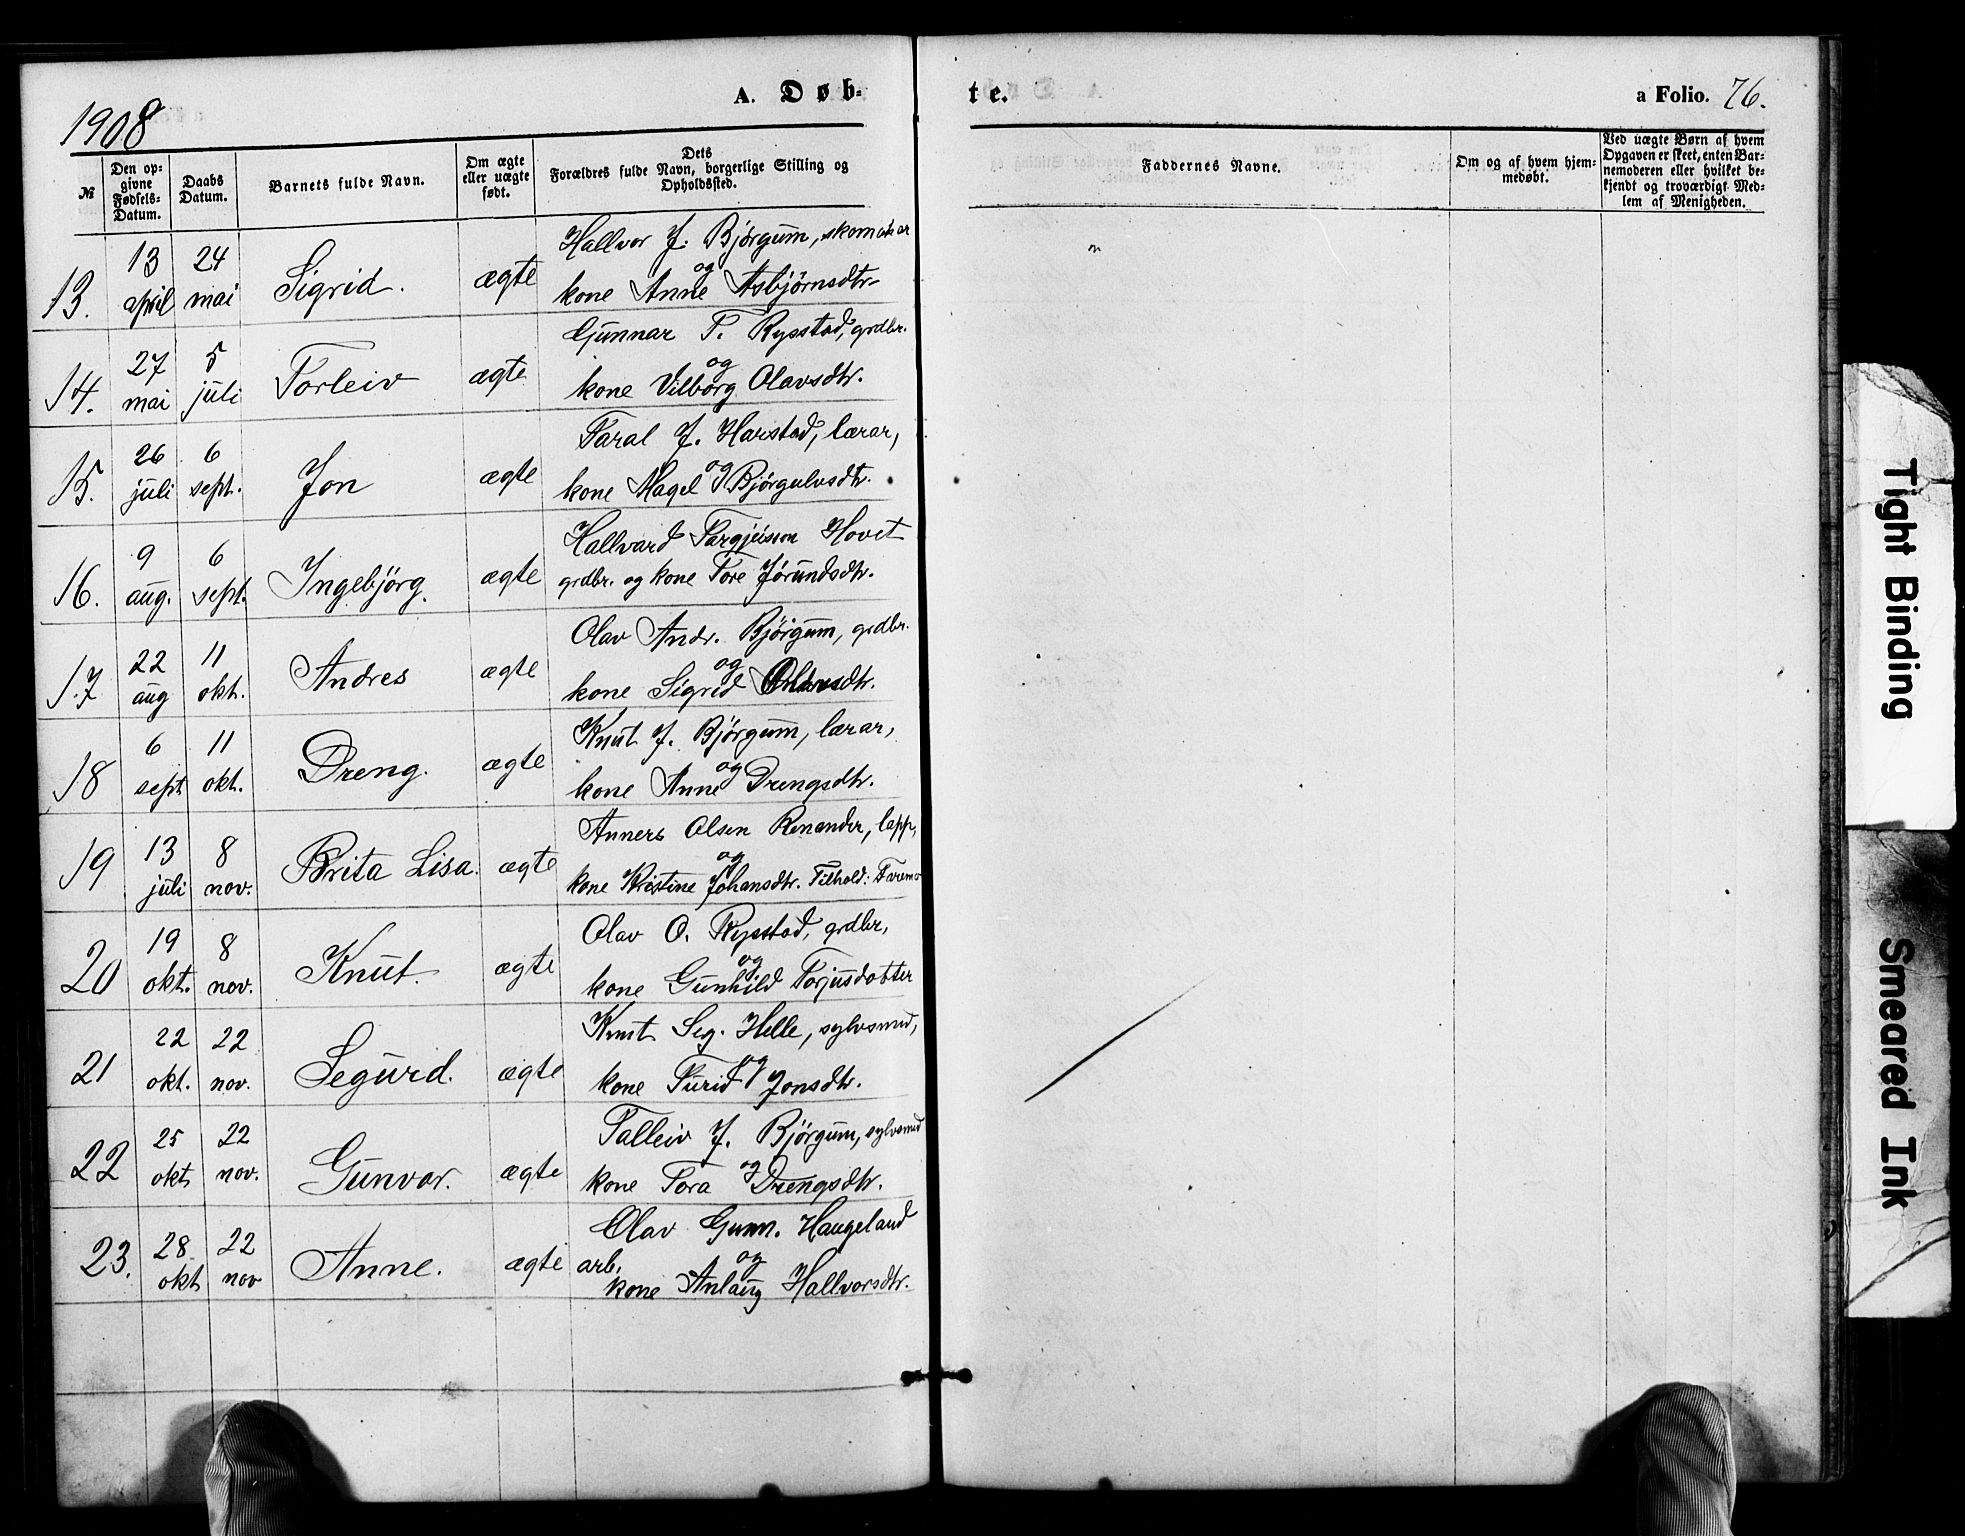 1908
A. Døb-
te.
a Folio. 76.
№
Den op-
givne
Fødsels-
Datum.
Daabs
Datum.
Barnets fulde Navn.
Om ægte
eller uægte
født.
Dets
Forældres fulde Navn, borgerlige Stilling og
Opholdssted.
Faddernes Navne.
Om og af hvem hjem-
medøbt.
Ved uægte Børn af hvem
Opgaven er skeet, enten Bar-
nemoderen eller hvilket be-
kjendt og troværdigt Med-
lem af Menigheden.
13. 13 april 24 mai Sigrid. ægte Hallvor J. Bjørgum, skomakar
og
kone Anne Asbjørnsdtr.
14. 27 mai 5 juli Torleiv ægte Gunnar T. Rysstad, grdbr.
og
kone Vilborg Olavsdtr.
15. 26 juli 6 sept. Jon ægte Taral J. Harstad, lærar,
og
kone Hagel Bjørgulvsdtr.
16. 9 aug. 6 sept. Ingebjörg. ægte Hallvard Targjeisson Hovet
grdbr. og kone Tore Jørundsdtr.
17 22 aug 11 okt. Andres ægte Olav Andr. Bjørgum, grdbr.
og
kone Sigrid Olavsdtr.
18 6 sept 11 okt. Dreng. ægte Knut J. Bjørgum, lærar,
og
kone Anne Drengsdtr.
19 13 juli 8 nov. Brita Lisa. ægte Anners Olsen Renander, lapp,
og
kone Kristine Johansdtr. Tilhold:
20 19 okt. 8 nov. Knut. ægte Olav O. Rysstad, grdbr,
og
kone Gunhild Torjusdotter
21 22 okt. 22 nov. Segurd. ægte Knut Seg. Helle, sylvsmed,
og
kone Turid Jonsdtr.
22 25 okt 22 nov. Gunvor. ægte Talleiv J. Bjørgum, sylvsmed
og
kone Tora Drengsdtr.
23. 28 okt 22 nov Anne. ægte Olav Gunn. Haugeland
arb. og
kone Anlaug Hallvorsdtr.
Tight Binding
Smeared Ink